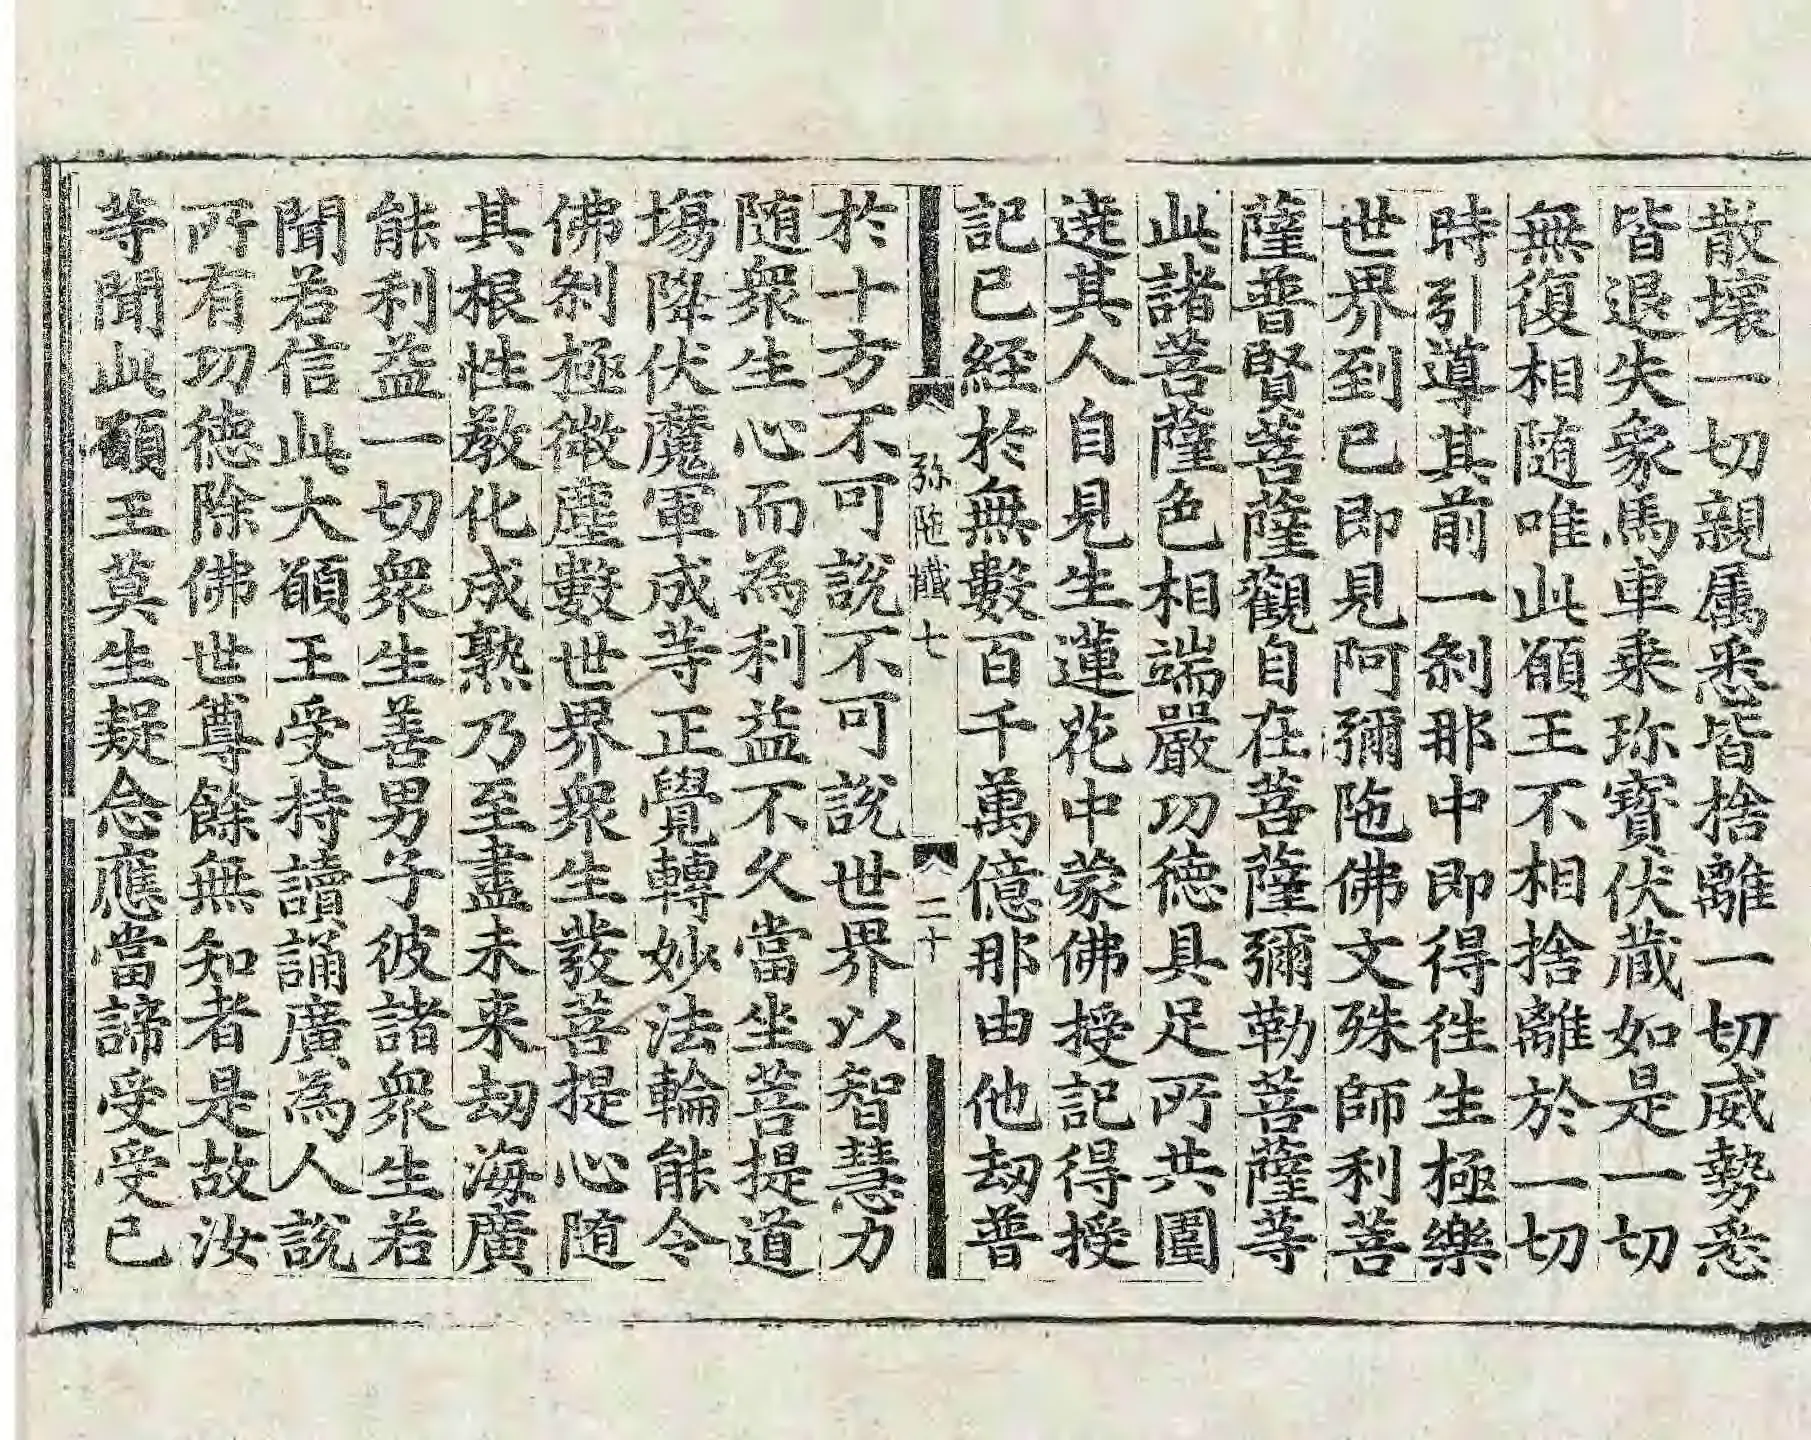 散壞一切親属悉皆捨離一切威勢悉
皆退失象馬車乘珎寳伏蔵如是一切
無復相随唯此願王不相捨離於一切
時引導其前一剎那中即得徃生極樂
世界到已即見阿彌陁佛文殊師利菩
薩普賢菩薩觀自在菩薩彌勒菩薩等
此諸菩薩色相端嚴功德具足所共圍
遶其人自見生蓮花中蒙佛授記得授
記已經於無數百千萬億那由他刼普
弥陁懺七 二十
於十方不可說不可說世界以智慧力
随衆生心而為利益不久當坐菩提道
塲降伏魔軍成等正覺轉妙法輪能令
佛剎極微塵數世界衆生發菩提心随
其根性教化成熟乃至盡未来刼海廣
能利益一切衆生善男子彼諸衆生若
聞若信此大願王受持讀誦廣為人說
所有功德除佛世尊餘無知者是故汝
等聞此願王莫生疑念應當諦受受已